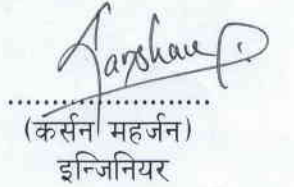 ....................
(कर्सन महर्जन)
इन्जिनियर